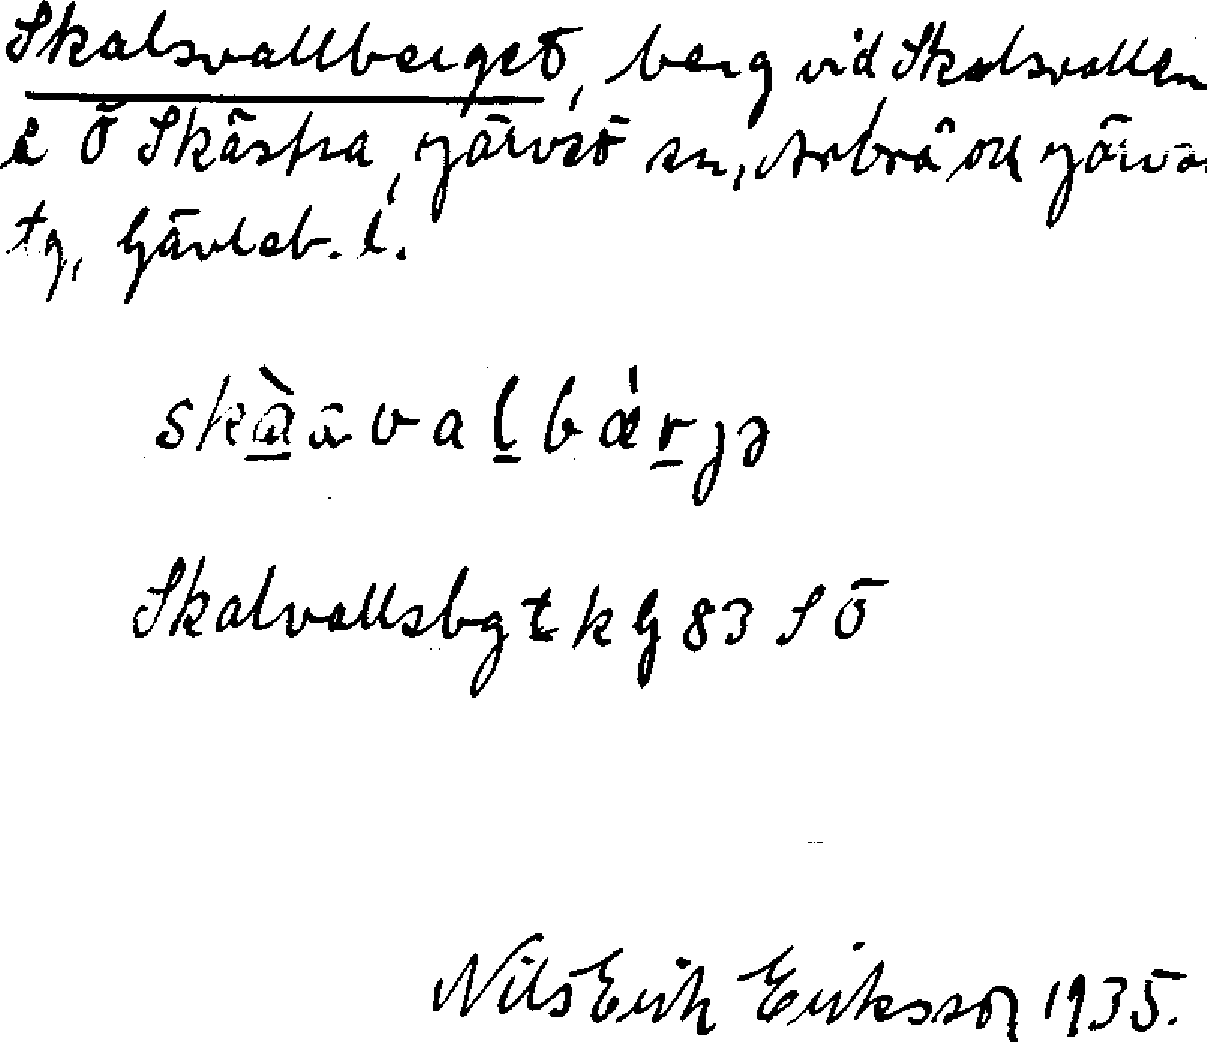 Skalsvallberget, berg vid Skalsvallen
i Ö Skästra, Järvsö sn, Arbrå och Järvsö
tg, Gävleb. l.
skàavalbǽrjə
Skalvallsbgt k G 83 S Ö
Nils Erik Eriksson 1935.